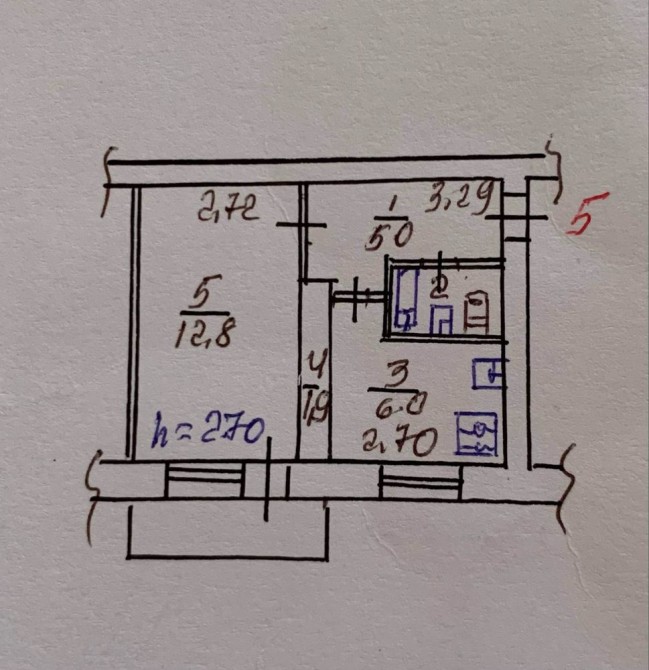 2,72
1
50
3,29
5
5
12,8
2
4
1,9
3
6.0
2,70
h=270